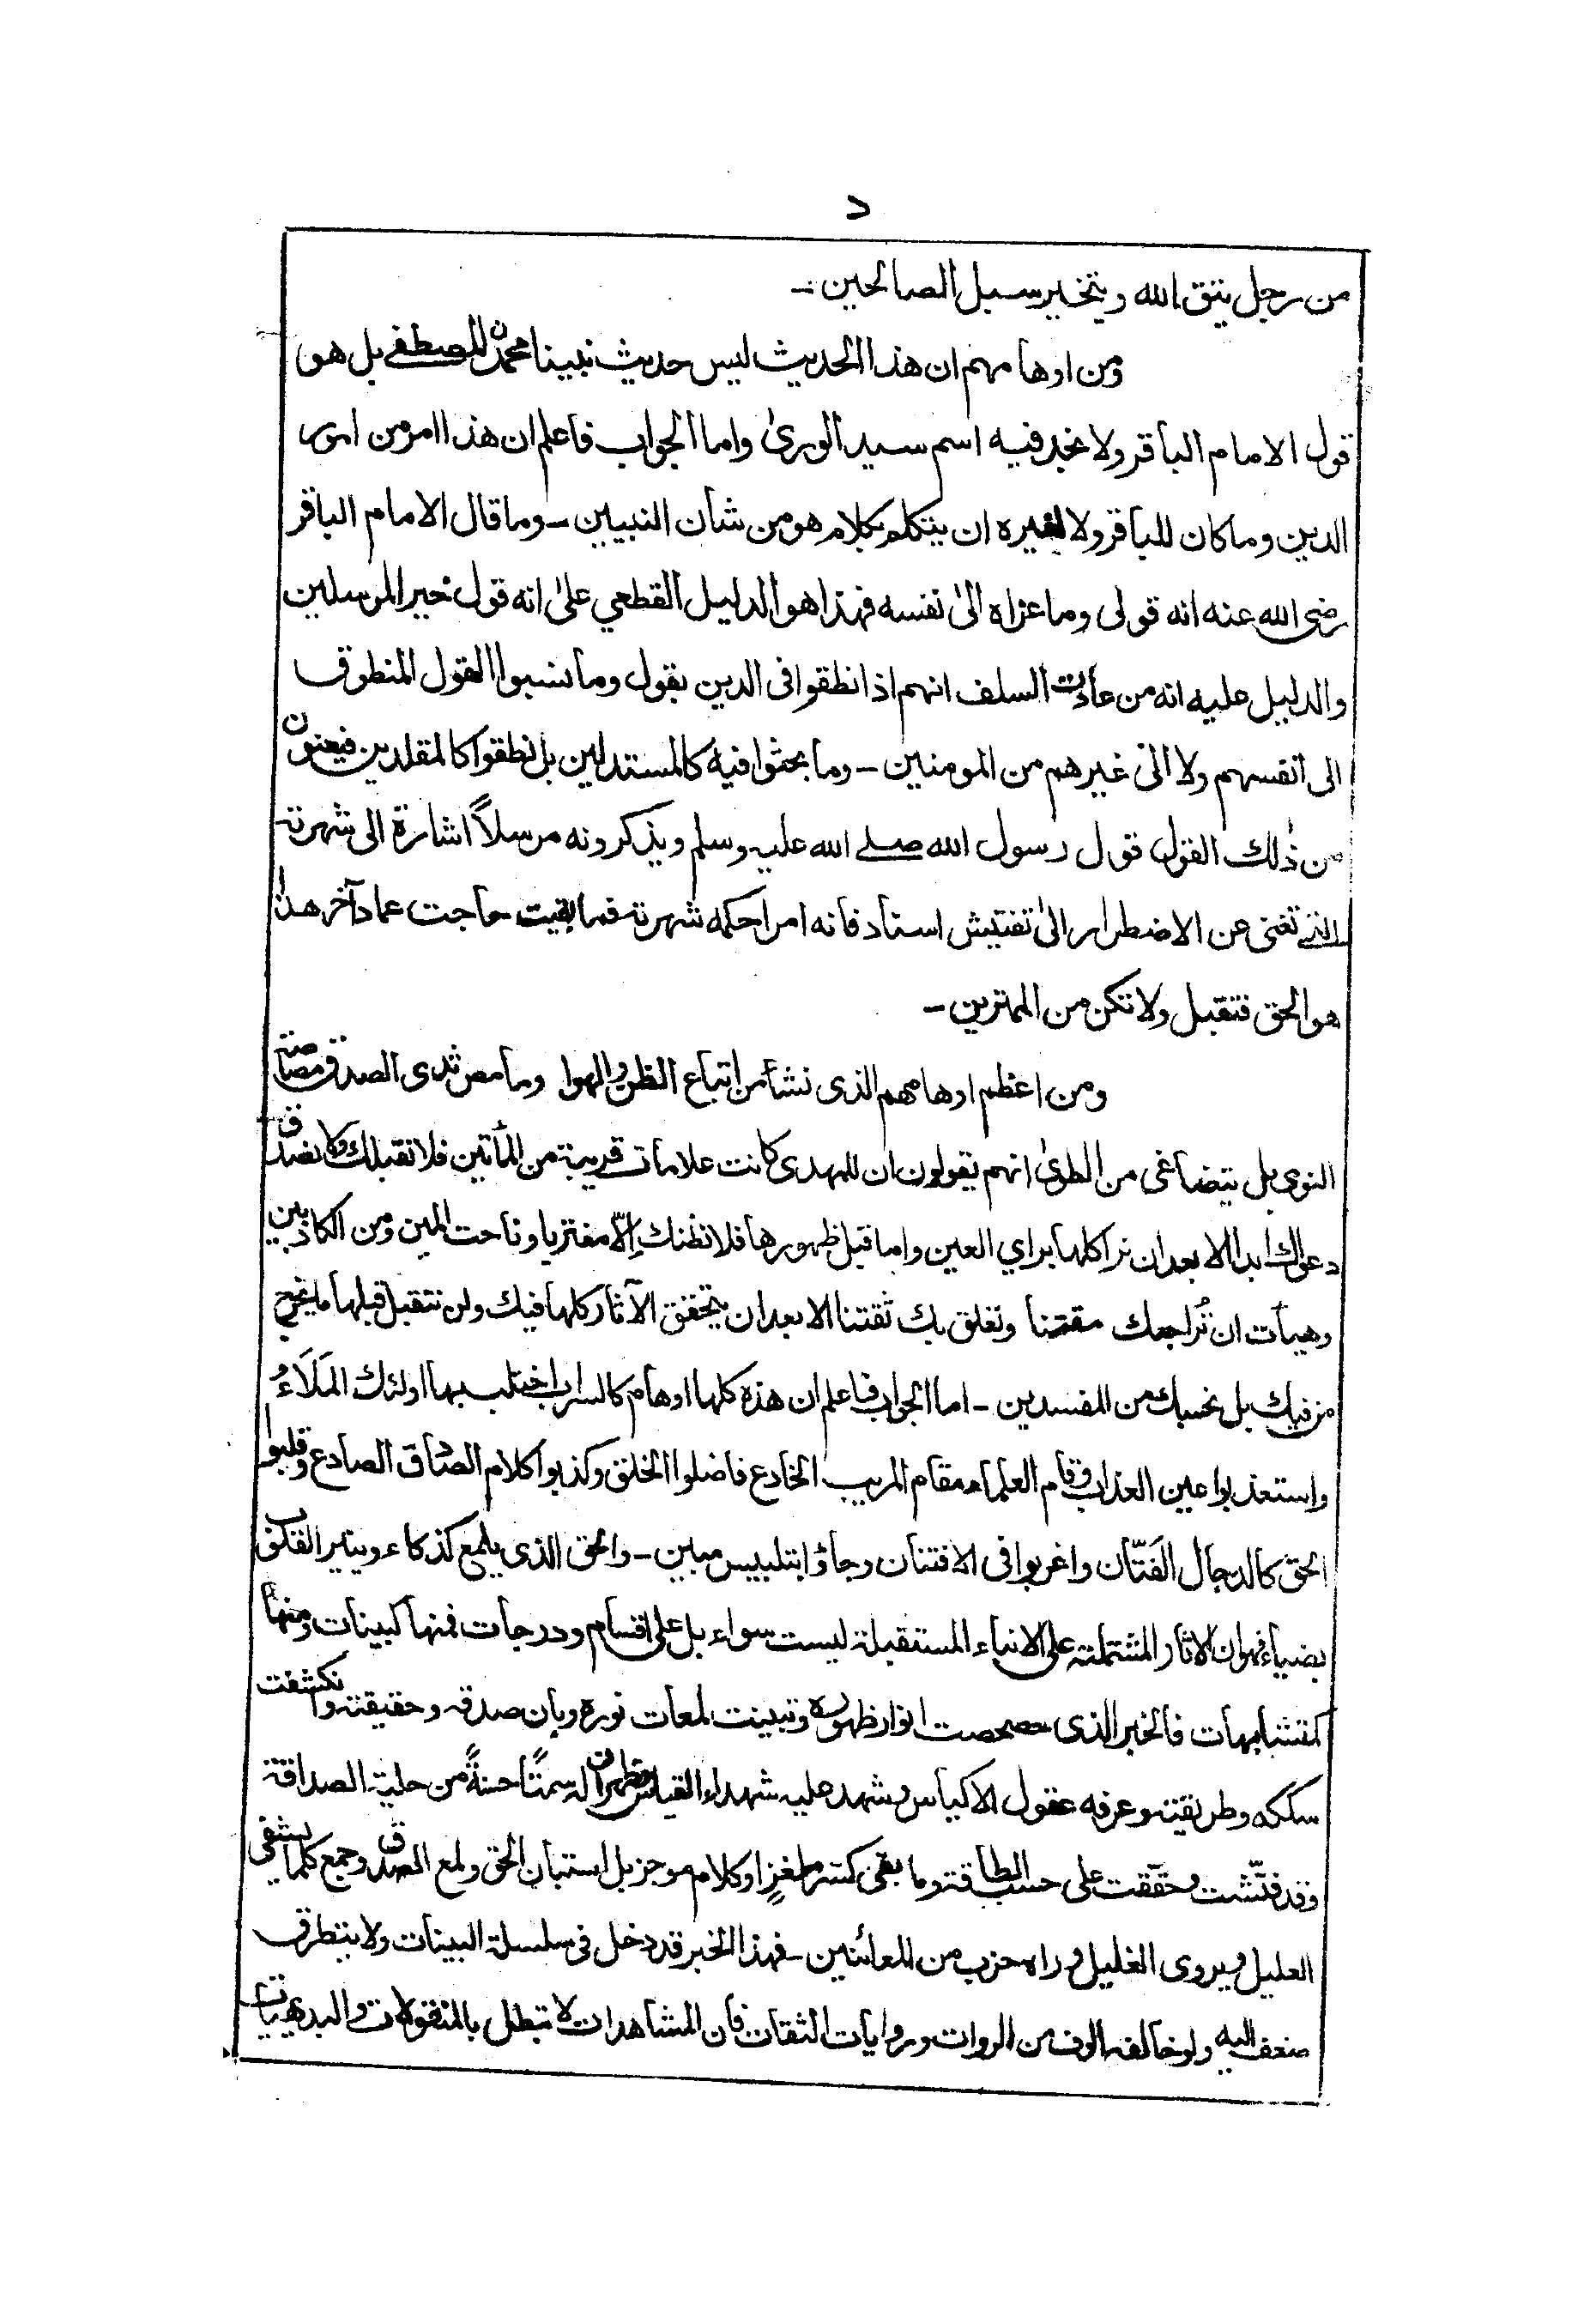 د
من رجل يتق الله ويتخير سبيل الصالحين -
ومن اوهامهم ان هذا الحديث ليس حديث نبينا محمدن المصطفے بل هو
قول الامام الباقر ولا نجد فيه اسم سيد الورىٰ واما الجواب فاعلم ان هذا امر من امور
الدين وما كان للباقر ولا لغيره ان يتكلم بكلام هو من شأن النبيين - وما قال الامام الباقر
رضى الله عنه انه قولى وما عزاه الىٰ نفسه فهذا هو الدليل القطعي علىٰ انه قول خير المرسلين
والدليل عليه انه من عادات السلف انهم اذا نطقوا فى الدين بقول وما نسبوا القول المنطوق
الى انفسهم ولا الىٰ غيرهم من المومنين - وما بحثوا فيه كالمستدلين بل نطقوا كالمقلدين فيعنون
من ذٰلك القول قول رسول الله صلے الله عليه وسلم ويذكرونه مرسلاً اشارة الى شهرته
التے تغنى عن الاضطرار الىٰ تفتيش اسناد فانه امر احكمه شهرته فما بقيت حاجت عماد آخر هذا
هو الحق فتقبل ولا تكن من الممترين -
ومن اعظم اوهامهم الذى نشأ من اتباع الظن والهوا وما مص ثدى الصدق مصاصته
النوى بل يتضاغى من الطوىٰ انهم يقولون ان للمهدى كانت علامات قريبة من المأتين فلا نقبلك ولا نصدق
دعواك ابدا الا بعد ان نرا كلها براي العين واما قبل ظهورها فلا نظنك اِلّا مفتريا وناحت المين ومن الكاذبين
وهيهات ان تُراجعك مقتنا وتعلق بك ثقتنا الا بعد ان يتحقق الآثار كلها فيك ولن نتقبل قبلها ما يخرج
من فيك بل نحسبك من المفسدين - اما الجواب فاعلم ان هذه كلها اوهام كالسراب اختلب بها اولئك المَلَاءُ
واستعذبوا عين العذاب وقام العلماء مقام المريب الخادع فاضلوا الخلق وكذبوا كلام الصادق الصادع وقلبوا
الحق كالدجال الفَتّان واغربوا فى الافتنان وجاؤا بتلبيس مبين - والحق الذى يلمع كذكاء وينير القلوب
بضياء فهو ان الاثار المشتملة على الانباء المستقبلة ليست سواء بل على اقسام ودرجات فمنها كبينات ومنها
كمتشابهات فالخبر الذى حصحصت انوار ظهوره وتبينت لمعات نوره وبان صدقه وحقيقته وانكشفت
سككه وطريقته وعرفه عقول الاكياس وشهد عليه شهداء القياس وظهر ان له سمتًا حسنةً من حلية الصداقة
وقد فتّشت وحقّقت على حسب الطاقة وما بقى كسرٍ ملغزٍ او كلام موجز بل استبان الحق ولمع الصدق وجمع كلما يشفى
العليل ويروى الغليل وراه حزب من المعائنين - فهذا الخبر قد دخل فى سلسلة البينات ولا يتطرق
ضعف اليه ولو خالفه الوف من الروات وروايات الثقات فان المشاهدات لا تبطل بالمنقولات والبديهيات